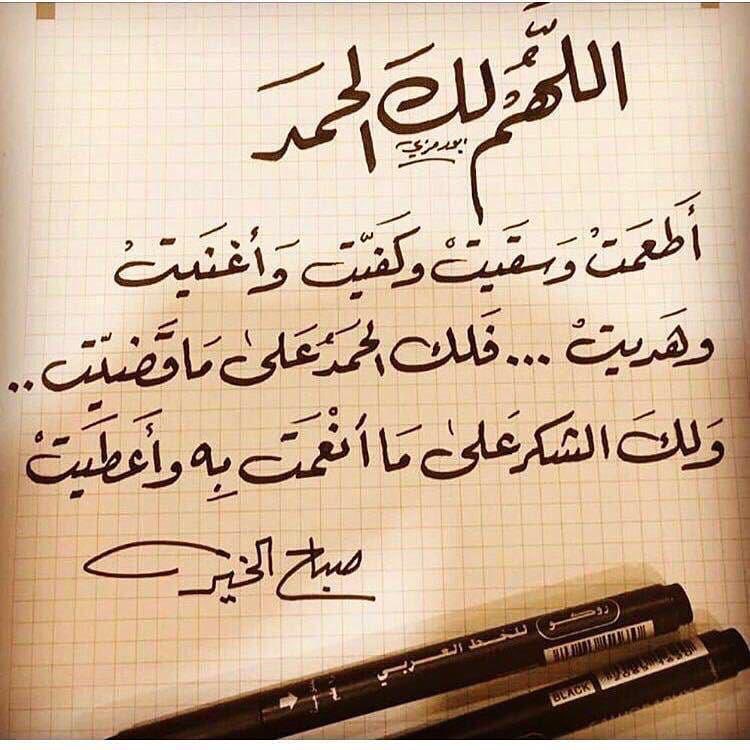 اللَّهُم لك الحمد
ابو رمزي
أَطعمتْ وَسقَيتْ وكَفيّت وَأغنَيتْ
وهَديتْ ... فَلك الحمدُ عَلىٰ مَا قَضيّت ..
وَلكَ الشكر عَلىٰ مَا أنْعَمَت بِه وأَعطَيَتْ
صباح الخير
زوكو للخط العربي
BLACK